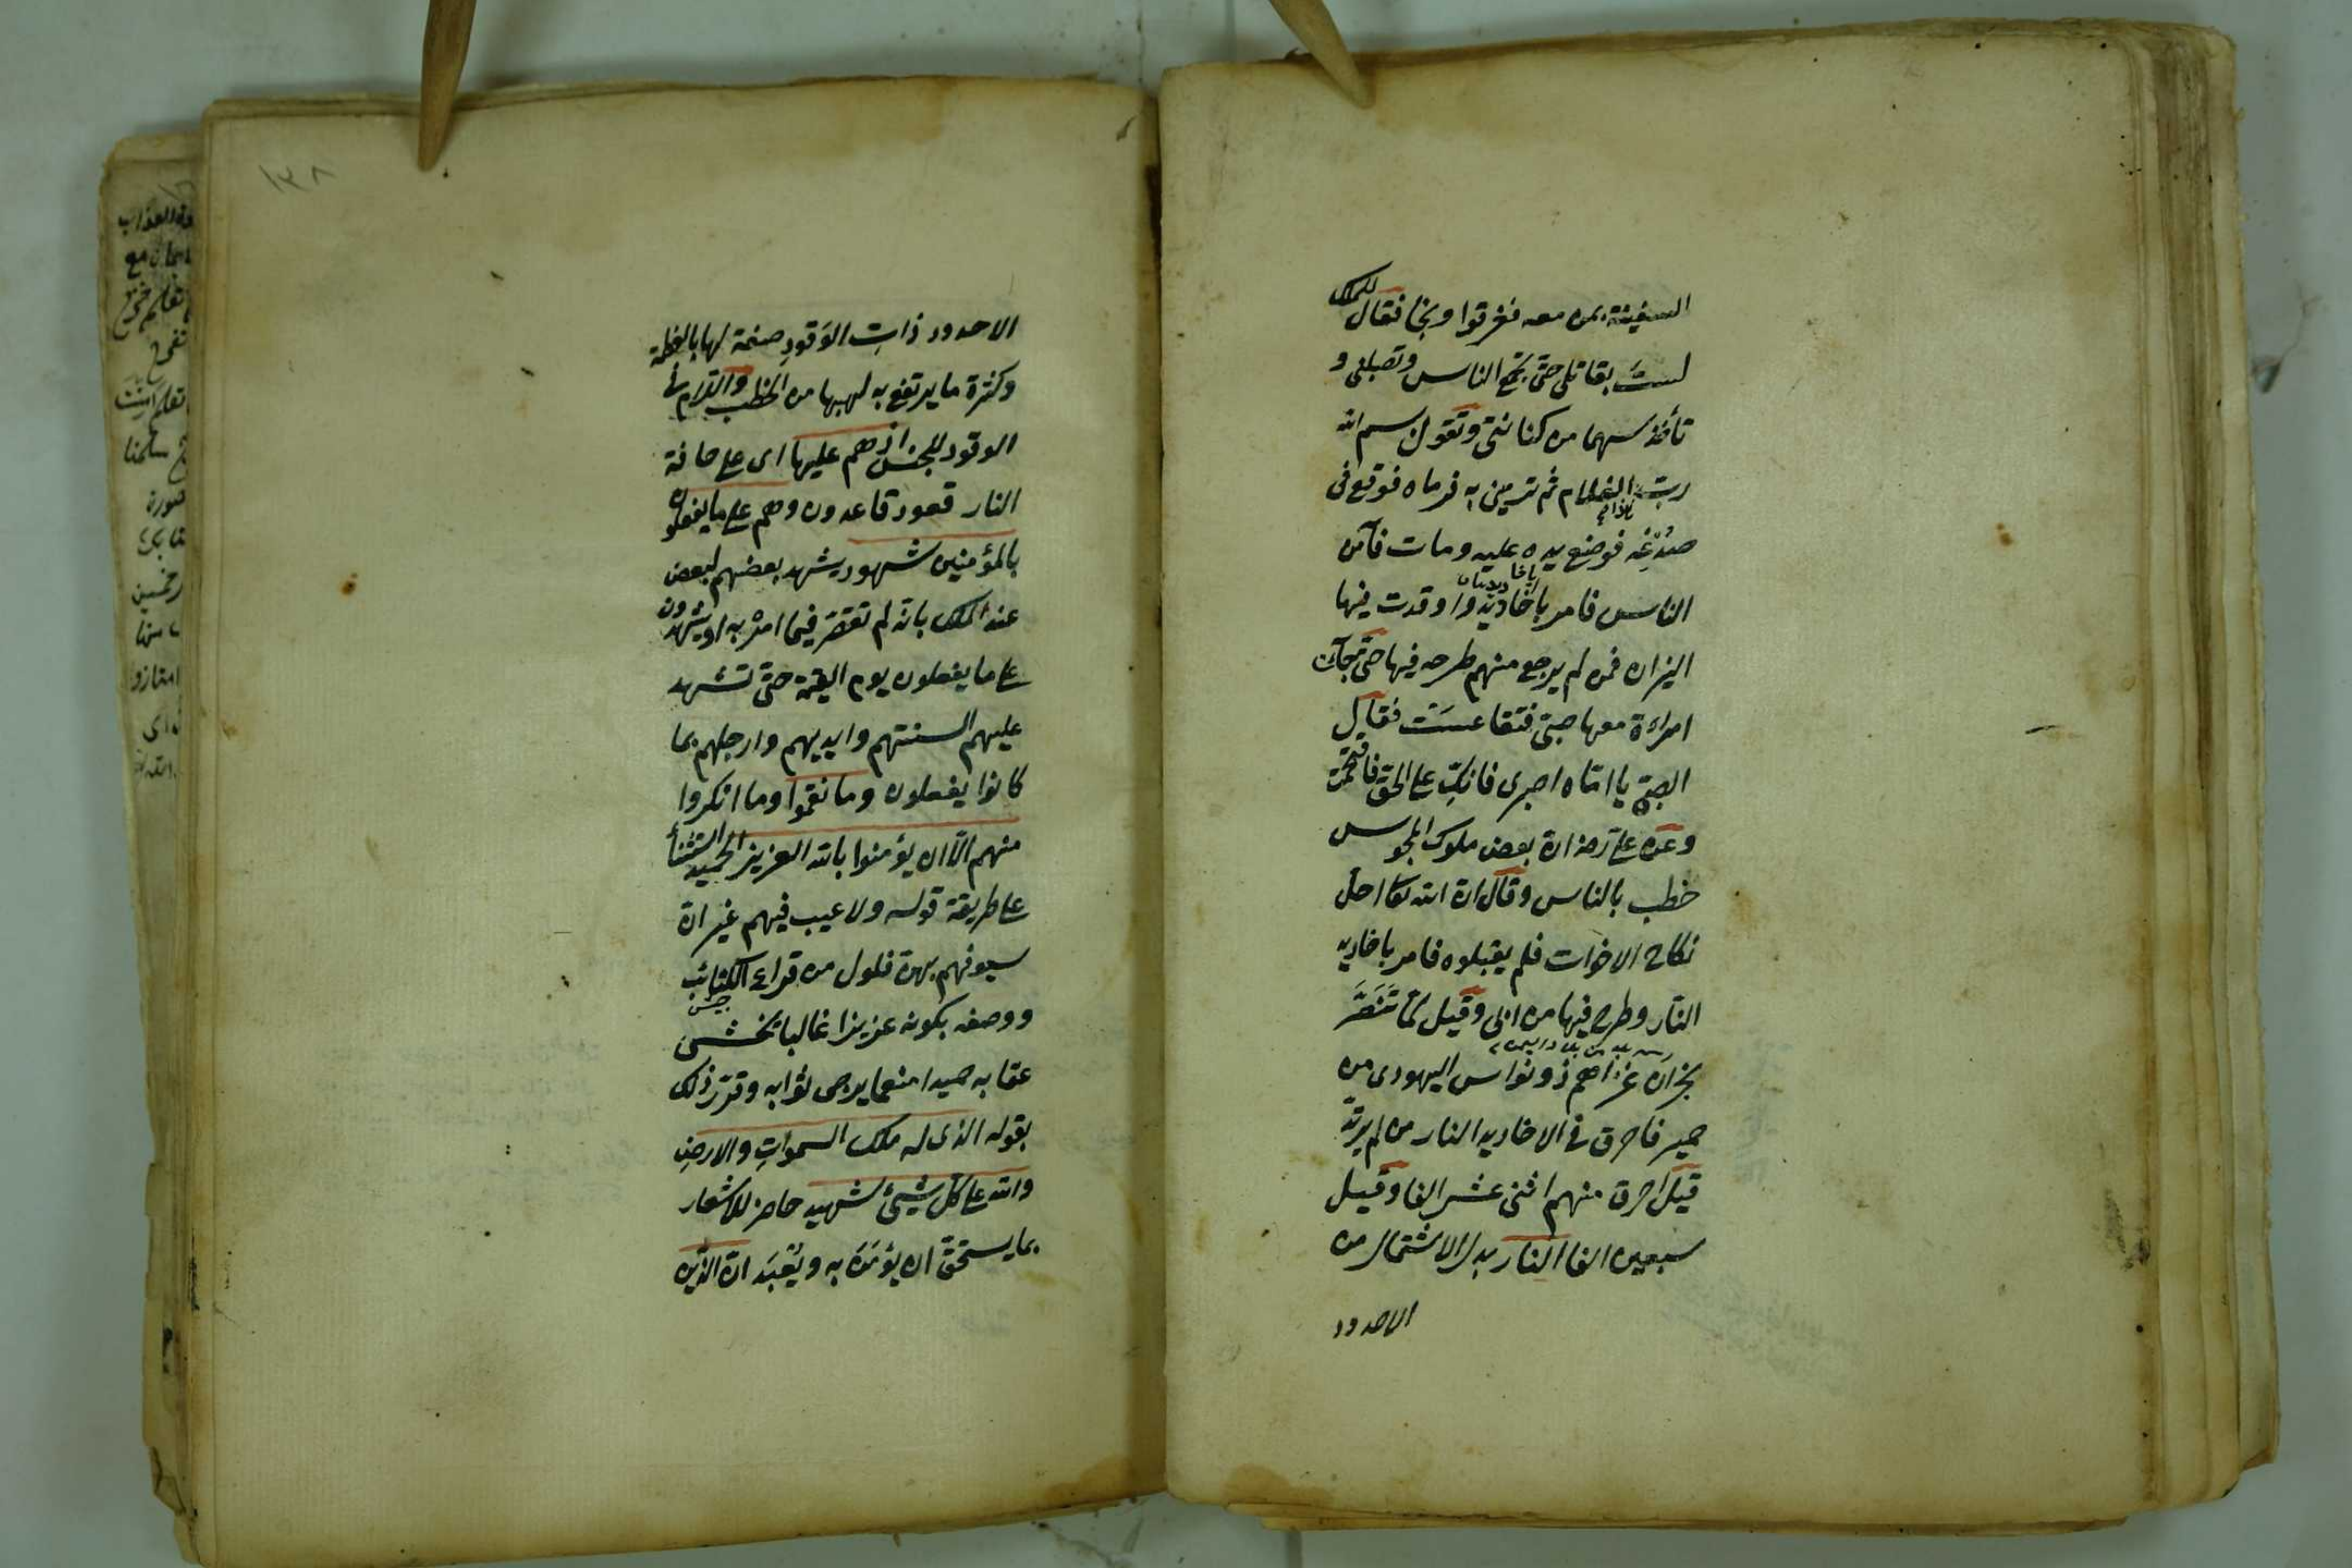 السفينة بمن معه فغرقوا ونجا فقال للملك
لست بقاتلى حتى تجمع الناس وتصلبنى و
تأخذ سهما من كنانتى وتقول بسم الله
رب الغلام ثم ترمينى به فرماه فوقع فى
صدغه فوضع يده عليه ومات فآمن
الناس فامر باخاديد واوقدت فيها
النيران فمن لم يرجع منهم طرحه فيها حتى جآءت
امراءة معها صبى فتقاعست فقال
الصبى يا اماه اصبرى فانك على الحق فاقتحمت
وعن على رضـ ان بعض ملوك المجوس
خطب بالناس وقال ان الله تعا احل
نكاح الاخوات فلم يقبلوه فامر باخاديد
النار وطرح فيها من ابى وقيل لما تنصر
نجران غزاهم ذو نواس اليهودى من
حمير فاحرق فى الاخاديد النار من لم يرتد
قيل احرق منهم اثنى عشر الفا وقيل
سبعين الفا النار بدل الاشتمال من
الاخدود
١٣٨
الاخدود ذاتِ الوَقودِ صفة لها بالعظمة
وكثرة ما يرتفع به لهبها من الحطب واللام فى
الوقود للجنس اذ هم عليها اى على حافة
النار قعود قاعدون وهم على ما يفعلون
بالمؤمنين شهود يشهد بعضهم لبعض
عند الملك بانه لم تقصر فيما امر به او يشهدون
على ما يفعلون يوم القيمة حتى تشهد
عليهم السنتهم وايديهم وارجلهم بما
كانوا يفعلون وما نقموا وما انكروا
منهم الّا ان يؤمنوا بالله العزيز الحميد استثنأ
على طريقة قوله ولا عيب فيهم غير ان
سيوفهم بهن فلول من قراع الكتائب
جيش
ووصفه بكونه عزيزا غالبا يخشى
عقابه حميدا منعما يرجى ثوابه وقرّر ذلك
بقوله الذى له ملك السمواتِ والارضِ
والله على كل شيئ شهيد حاضر للاشعار
بما يستحق ان يؤمَن به ويُعْبَد ان الذين